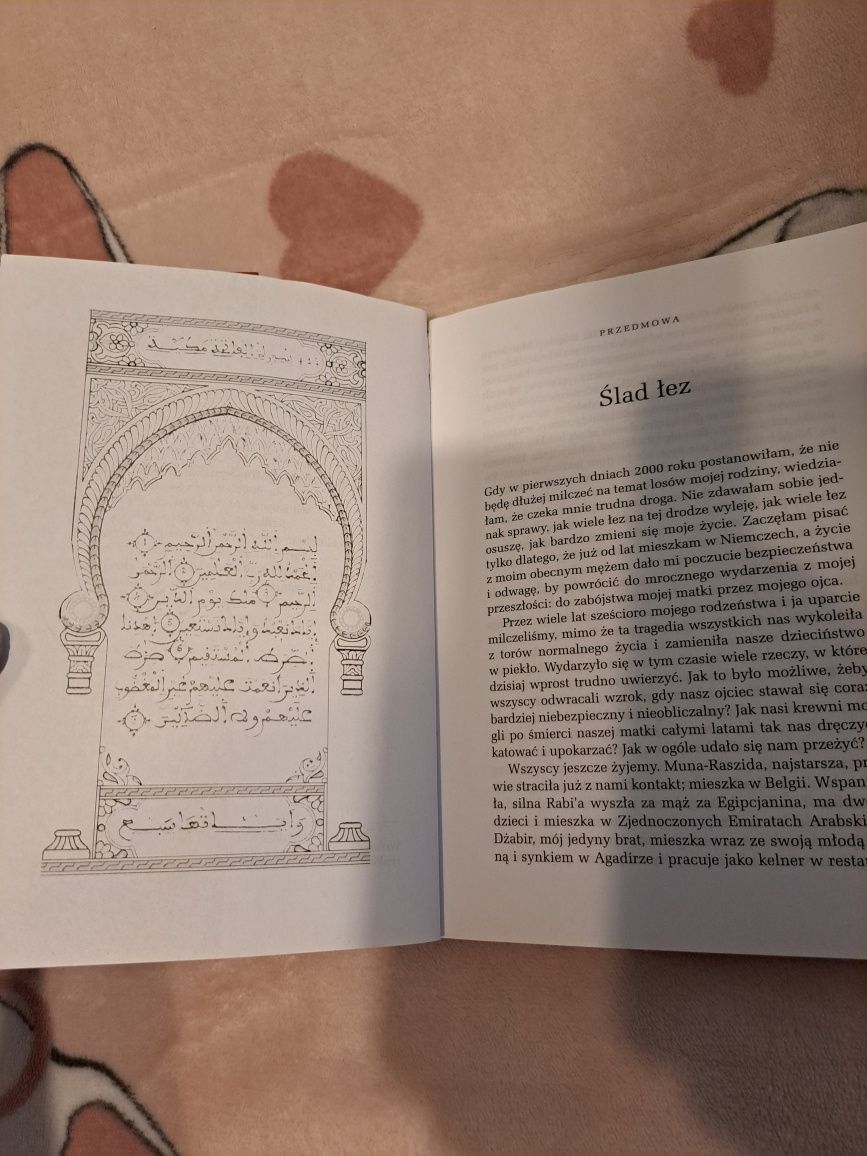 الفاتحة مكية
بسم الله الرحمن الرحيم
الحمد لله رب العلمين الرحمن
الرحيم ملك يوم الدين
إياك نعبد وإياك نستعين اهدنا
الصرط المستقيم صرط
الذين أنعمت عليهم غير المغضوب
عليهم ولا الضالين
وآياتها سبع
PRZEDMOWA
Ślad łez
Gdy w pierwszych dniach 2000 roku postanowiłam, że nie
będę dłużej milczeć na temat losów mojej rodziny, wiedzia-
łam, że czeka mnie trudna droga. Nie zdawałam sobie jed-
nak sprawy, jak wiele łez na tej drodze wyleję, jak wiele łez
osuszę, jak bardzo zmieni się moje życie. Zaczęłam pisać
tylko dlatego, że już od lat mieszkam w Niemczech, a życie
z moim obecnym mężem dało mi poczucie bezpieczeństwa
i odwagę, by powrócić do mrocznego wydarzenia z mojej
przeszłości: do zabójstwa mojej matki przez mojego ojca.
Przez wiele lat sześcioro mojego rodzeństwa i ja uparcie
milczeliśmy, mimo że ta tragedia wszystkich nas wykoleiła
z torów normalnego życia i zamieniła nasze dzieciństwo
w piekło. Wydarzyło się w tym czasie wiele rzeczy, w które
dzisiaj wprost trudno uwierzyć. Jak to było możliwe, żeby
wszyscy odwracali wzrok, gdy nasz ojciec stawał się coraz
bardziej niebezpieczny i nieobliczalny? Jak nasi krewni mo
gli po śmierci naszej matki całymi latami tak nas dręczyć
katować i upokarzać? Jak w ogóle udało się nam przeżyć?
Wszyscy jeszcze żyjemy. Muna-Raszida, najstarsza, pr
wie straciła już z nami kontakt; mieszka w Belgii. Wspan
ła, silna Rabi'a wyszła za mąż za Egipcjanina, ma dwo
dzieci i mieszka w Zjednoczonych Emiratach Arabski
Dżabir, mój jedyny brat, mieszka wraz ze swoją młodą
ną i synkiem w Agadirze i pracuje jako kelner w restau